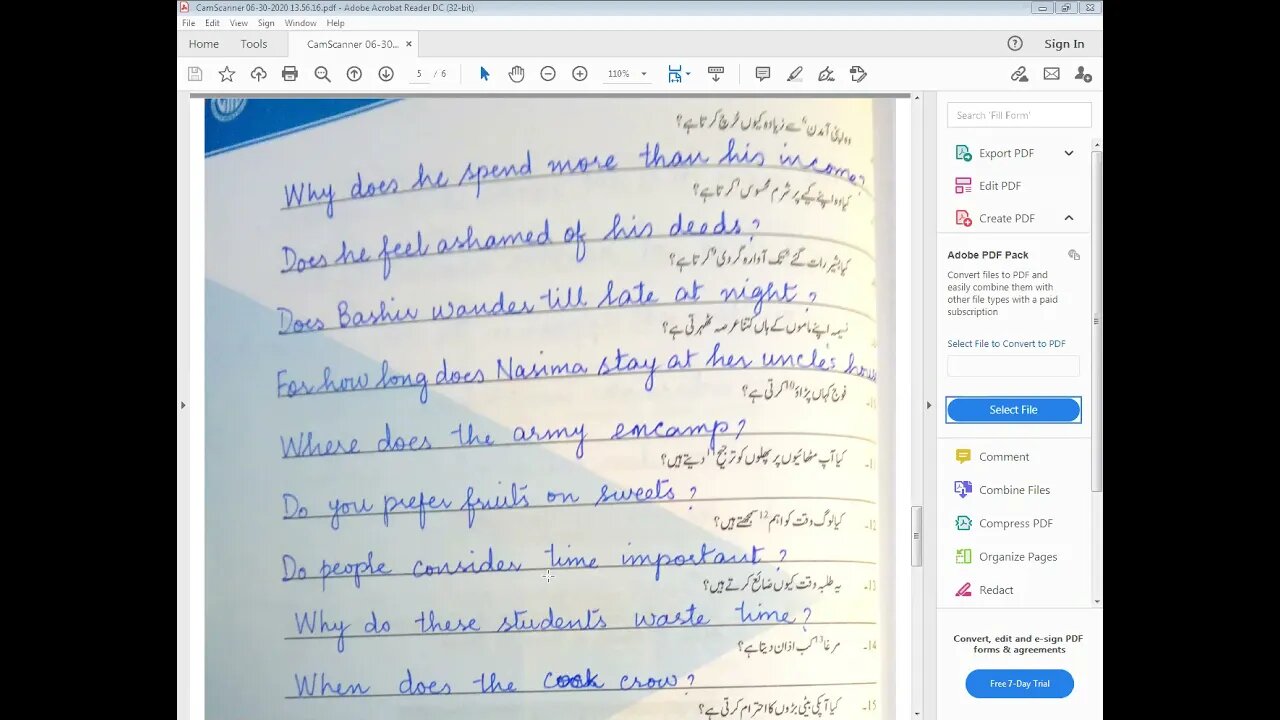 CamScanner 06-30-2020 13.56.16.pdf - Adobe Acrobat Reader DC (32-bit)
File Edit View Sign Window Help
Home Tools CamScanner 06-30... × Sign In
5 / 6 110%
وہ اپنی آمدن سے زیادہ کیوں خرچ کرتا ہے؟
Why does he spend more than his income?
کیا وہ اپنے کیے پر شرم محسوس کرتا ہے؟
Does he feel ashamed of his deeds?
کیا بشیر رات گئے تک آوارہ گردی کرتا ہے؟
Does Bashir wander till late at night?
نسیمہ اپنے ماموں کے ہاں کتنا عرصہ ٹھہرتی ہے؟
For how long does Nasima stay at her uncle's hous
فوج کہاں پڑاؤ10 کرتی ہے؟
Where does the army encamp?
-11 کیا آپ مٹھائیوں پر پھلوں کو ترجیح11 دیتے ہیں؟
Do you prefer fruits on sweets?
-12 کیا لوگ وقت کو اہم12 سمجھتے ہیں؟
Do people consider time important?
-13 یہ طلبہ وقت کیوں ضائع کرتے ہیں؟
Why do these students waste time?
-14 مرغا13 کب اذان دیتا ہے؟
When does the cook crow?
-15 کیا آپکی بیٹی بڑوں کا احترام کرتی ہے؟
Search 'Fill Form'
Export PDF
Edit PDF
Create PDF
Adobe PDF Pack
Convert files to PDF and
easily combine them with
other file types with a paid
subscription
Select File to Convert to PDF
Select File
Comment
Combine Files
Compress PDF
Organize Pages
Redact
Convert, edit and e-sign PDF
forms & agreements
Free 7-Day Trial